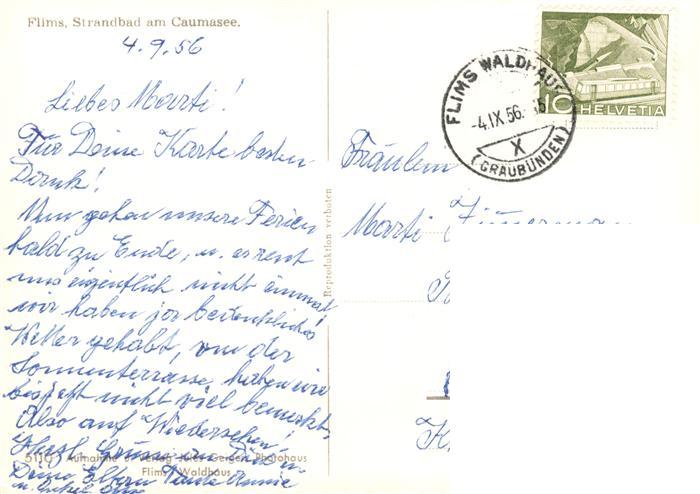 Flims, Strandbad am Caumasee.
4.9.56
Liebes Marti!
Für Deine Karte besten
Dank!
Nun gehen unsere Ferien
bald zu Ende, u. es reut
uns eigentlich nicht einmal,
wir haben ja bedenkliches
Wetter gehabt, von der
Sonnenterrasse, haben wir
bis jetzt nicht viel bemerkt.
Also auf Wiedersehen!
Herzl. Grüsse an Dich u.
Deine Eltern Tante Annie
5110 Aufnahme u. Verlag Jules Geiger, Photohaus
Flims Waldhaus
Reproduktion verboten
FLIMS WALDHAUS
-4.IX.56.
X
(GRAUBÜNDEN)
10 HELVETIA
Fräulein
Marti